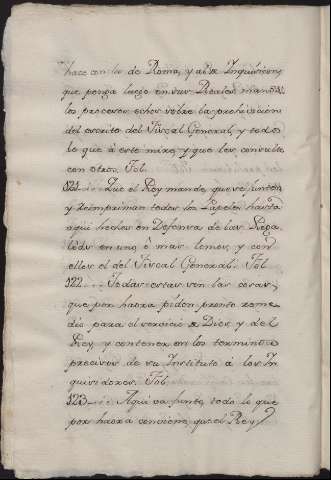 hace con los de Roma, y al de Inquisicion,
que ponga luego en sus Reales manos
los procesos echos sobre la prohivicion
del escrito del Fiscal General, y todo
lo que à esto mira, y que los consulte
con otros. Fol.
521... Que el Rey mande, que se junten
y Reimpriman todos los Papeles hasta
aqui hechos en Defensa de las Rega
lias en uno, ò mas tomos, y con
ellos el del Fiscal General. Fol
522... Todas estas son las cosas,
que por haora piden pronto reme
dio para el servicio de Dios, y del
Rey, y contener en los terminos
precisos de su Instituto à los In
quisidores. Fol.
523... Aqui va junto todo lo que
por haora conviene, que el Rey